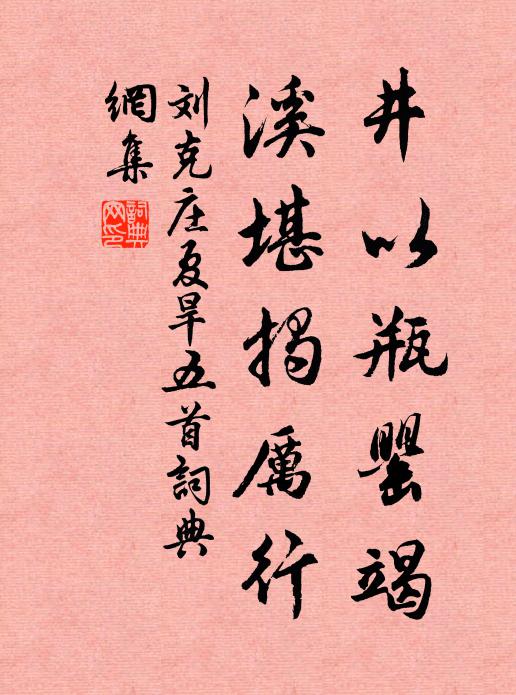 井以瓶罌竭
溪堪揭厲行
刘克庄夏旱五首詞典
網集
詞典
網印